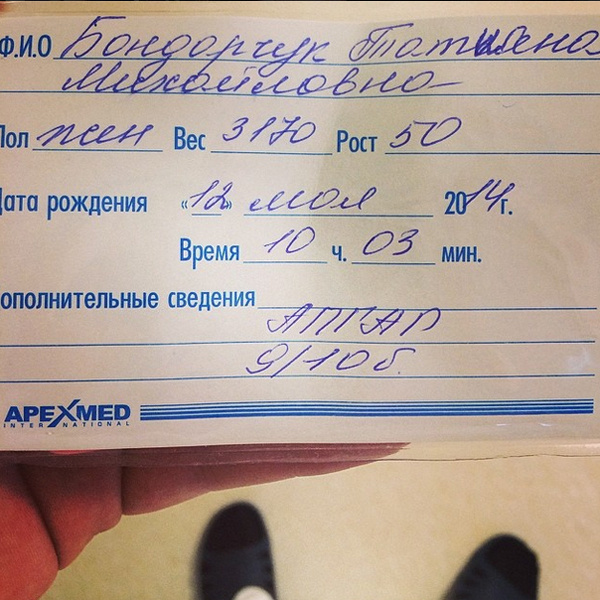 Ф.И.О Бондарчук Татьяна
Михайловна
Пол жен Вес 3170 Рост 50
Дата рождения «12» мая 2014г.
Время 10 ч. 03 мин.
ополнительные сведения
АПГАР
9/10б.
APEXMED
INTERNATIONAL